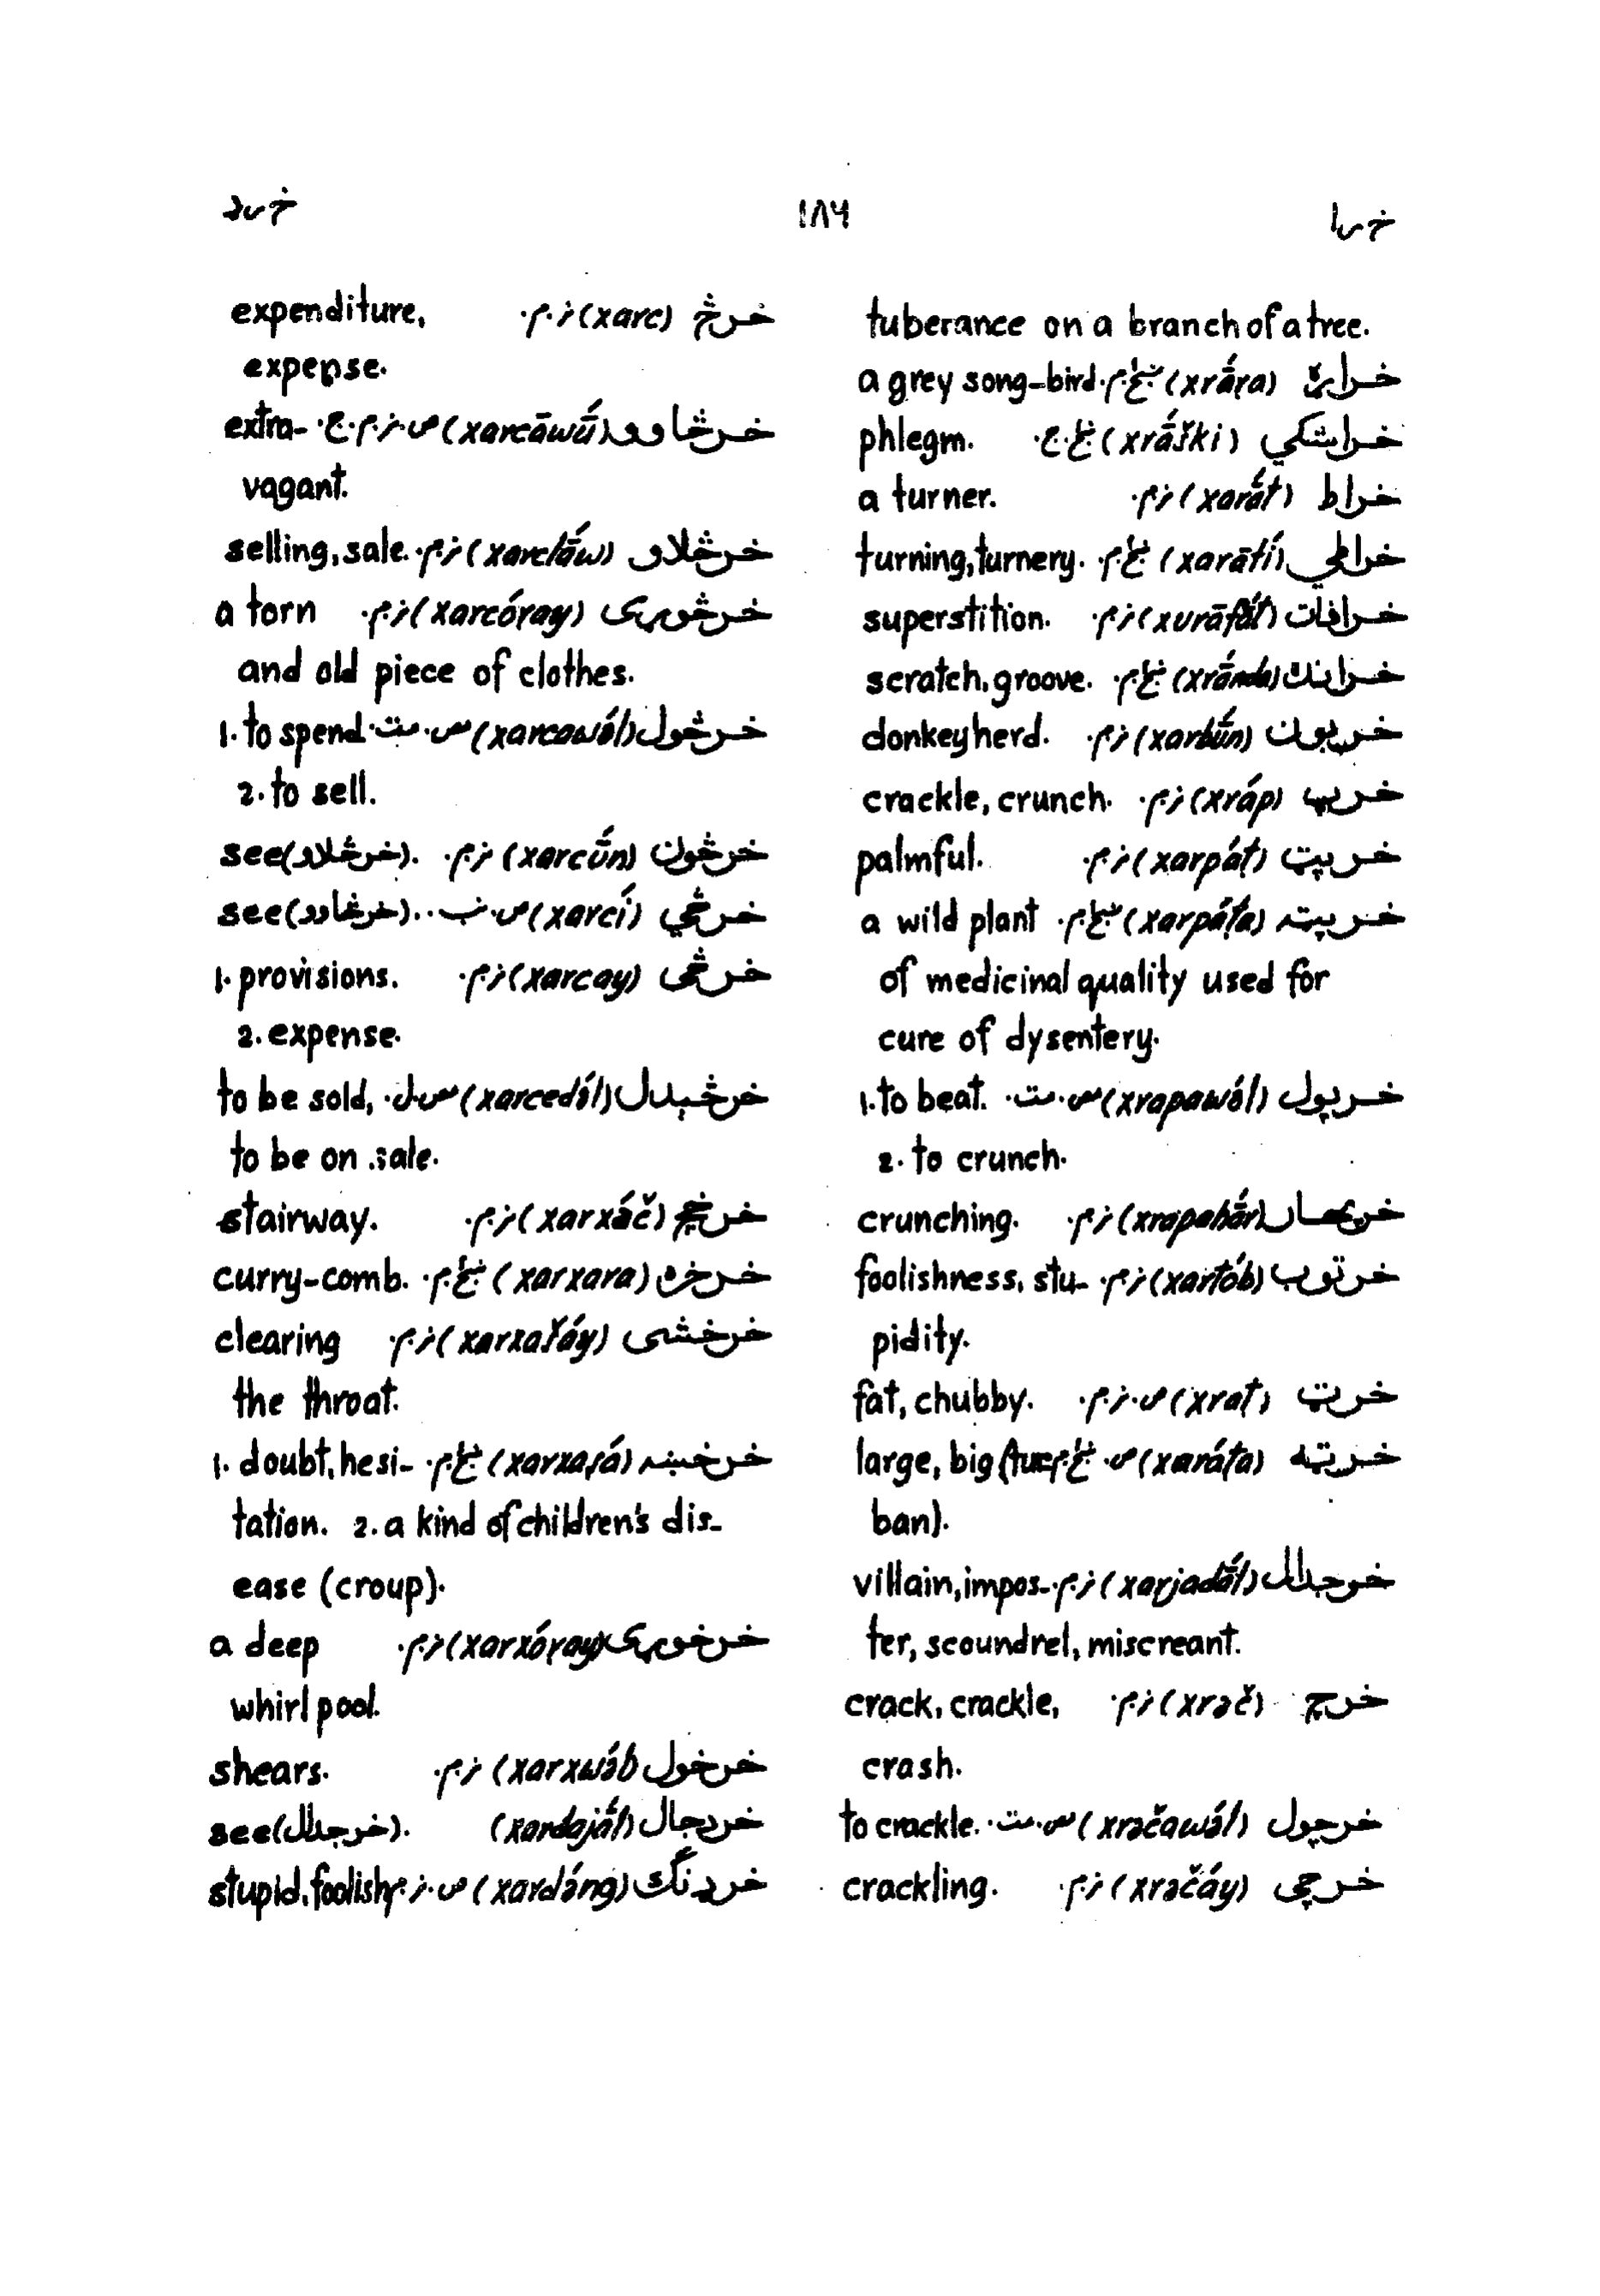 خرا ۱۸۶ خرد
tuberance on a branch of a tree.
خراړه (xrā́ṛa) ښځ.م. a grey song-bird
خراشکي (xrā́ški) ښځ.ج. phlegm.
خراط (xarā́t) نر.م. a turner.
خراطي (xarātí) ښځ.م. turning, turnery.
خرافات (xurāfā́t) نر.م. superstition.
خرانده (xrā́nda) ښځ.م. scratch, groove.
خربون (xarbū́n) نر.م. donkeyherd.
خرپ (xráp) نر.م. crackle, crunch.
خرپټ (xarpáṭ) نر.م. palmful.
خرپټه (xarpáṭa) ښځ.م. a wild plant
of medicinal quality used for
cure of dysentery.
خرپول (xrapawə́l) مص.مت. 1. to beat.
2. to crunch.
خرپهار (xrapahā́r) نر.م. crunching.
خرتوب (xartób) نر.م. foolishness, stu-
pidity.
خرټ (xraṭ) ص.نر.م. fat, chubby.
خرټه (xaráṭa) ص.ښځ.م. large, big (tur-
ban).
خرجدال (xarjadā́l) نر.م. villain, impos-
ter, scoundrel, miscreant.
خرچ (xrəč) نر.م. crack, crackle,
crash.
خرچول (xrəčawə́l) مص.مت. to crackle.
خرچی (xrəčáy) نر.م. crackling.
خرڅ (xarc) نر.م. expenditure,
expense.
خرڅاوو (xarcāwū́) ص.نر.م.ج. extra-
vagant.
خرڅلاو (xarclā́w) نر.م. selling, sale.
خرڅوړی (xarcóṛay) نر.م. a torn
and old piece of clothes.
خرڅول (xarcawə́l) مص.مت. 1. to spend
2. to sell.
خرڅون (xarcū́n) نر.م. see (خرڅلاو).
خرڅي (xarcí) ص.نب.. see (خرڅاوو).
خرڅی (xarcay) نر.م. 1. provisions.
2. expense.
خرڅېدل (xarcedə́l) مص.ل. to be sold,
to be on sale.
خرخچ (xarxáč) نر.م. stairway.
خرخره (xarxara) ښځ.م. curry-comb.
خرخشی (xarxašáy) نر.م. clearing
the throat.
خرخښه (xarxaṣ̌á) ښځ.م. 1. doubt, hesi-
tation. 2. a kind of children's dis-
ease (croup).
خرخوړی (xarxóṛay) نر.م. a deep
whirlpool.
خرخول (xarxwə́l) نر.م. shears.
خردجال (xardajā́l) see (خرجدال).
خردنګ (xardáng) ص.نر.م. stupid, foolish